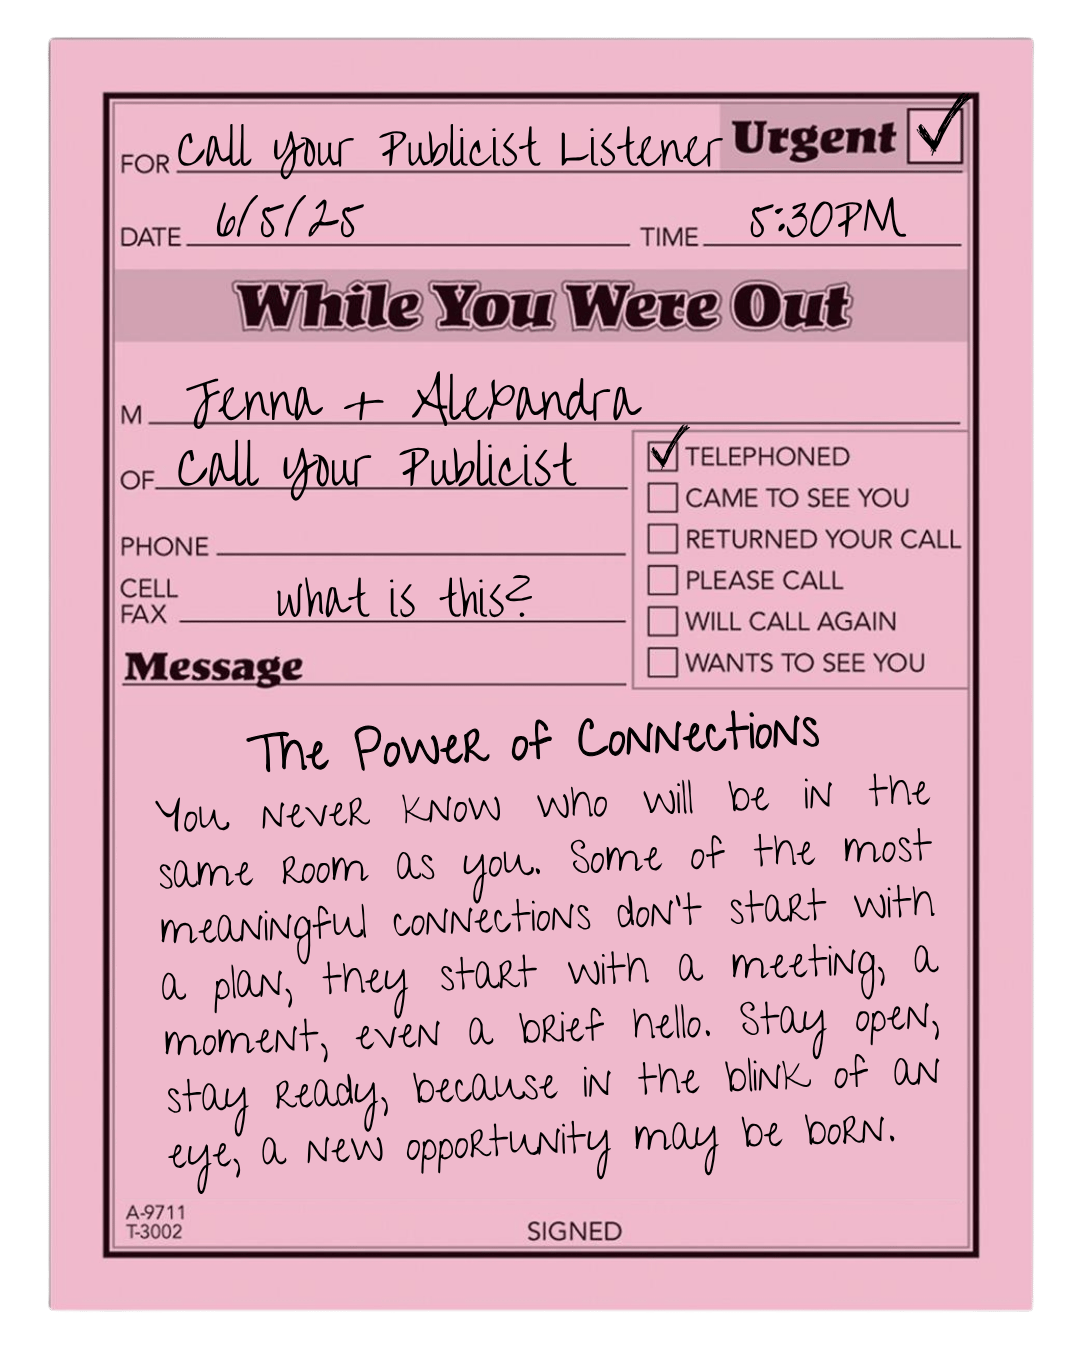 FOR Call your Publicist Listener Urgent ✓
DATE 6/5/25 TIME 5:30PM
While You Were Out
M Jenna + Alexandra
OF Call your Publicist
PHONE
CELL
FAX what is this?
✓ TELEPHONED
CAME TO SEE YOU
RETURNED YOUR CALL
PLEASE CALL
WILL CALL AGAIN
WANTS TO SEE YOU
Message
The Power of Connections
You never know who will be in the
same room as you. Some of the most
meaningful connections don't start with
a plan, they start with a meeting, a
moment, even a brief hello. Stay open,
stay ready, because in the blink of an
eye, a new opportunity may be born.
A-9711
T-3002
SIGNED